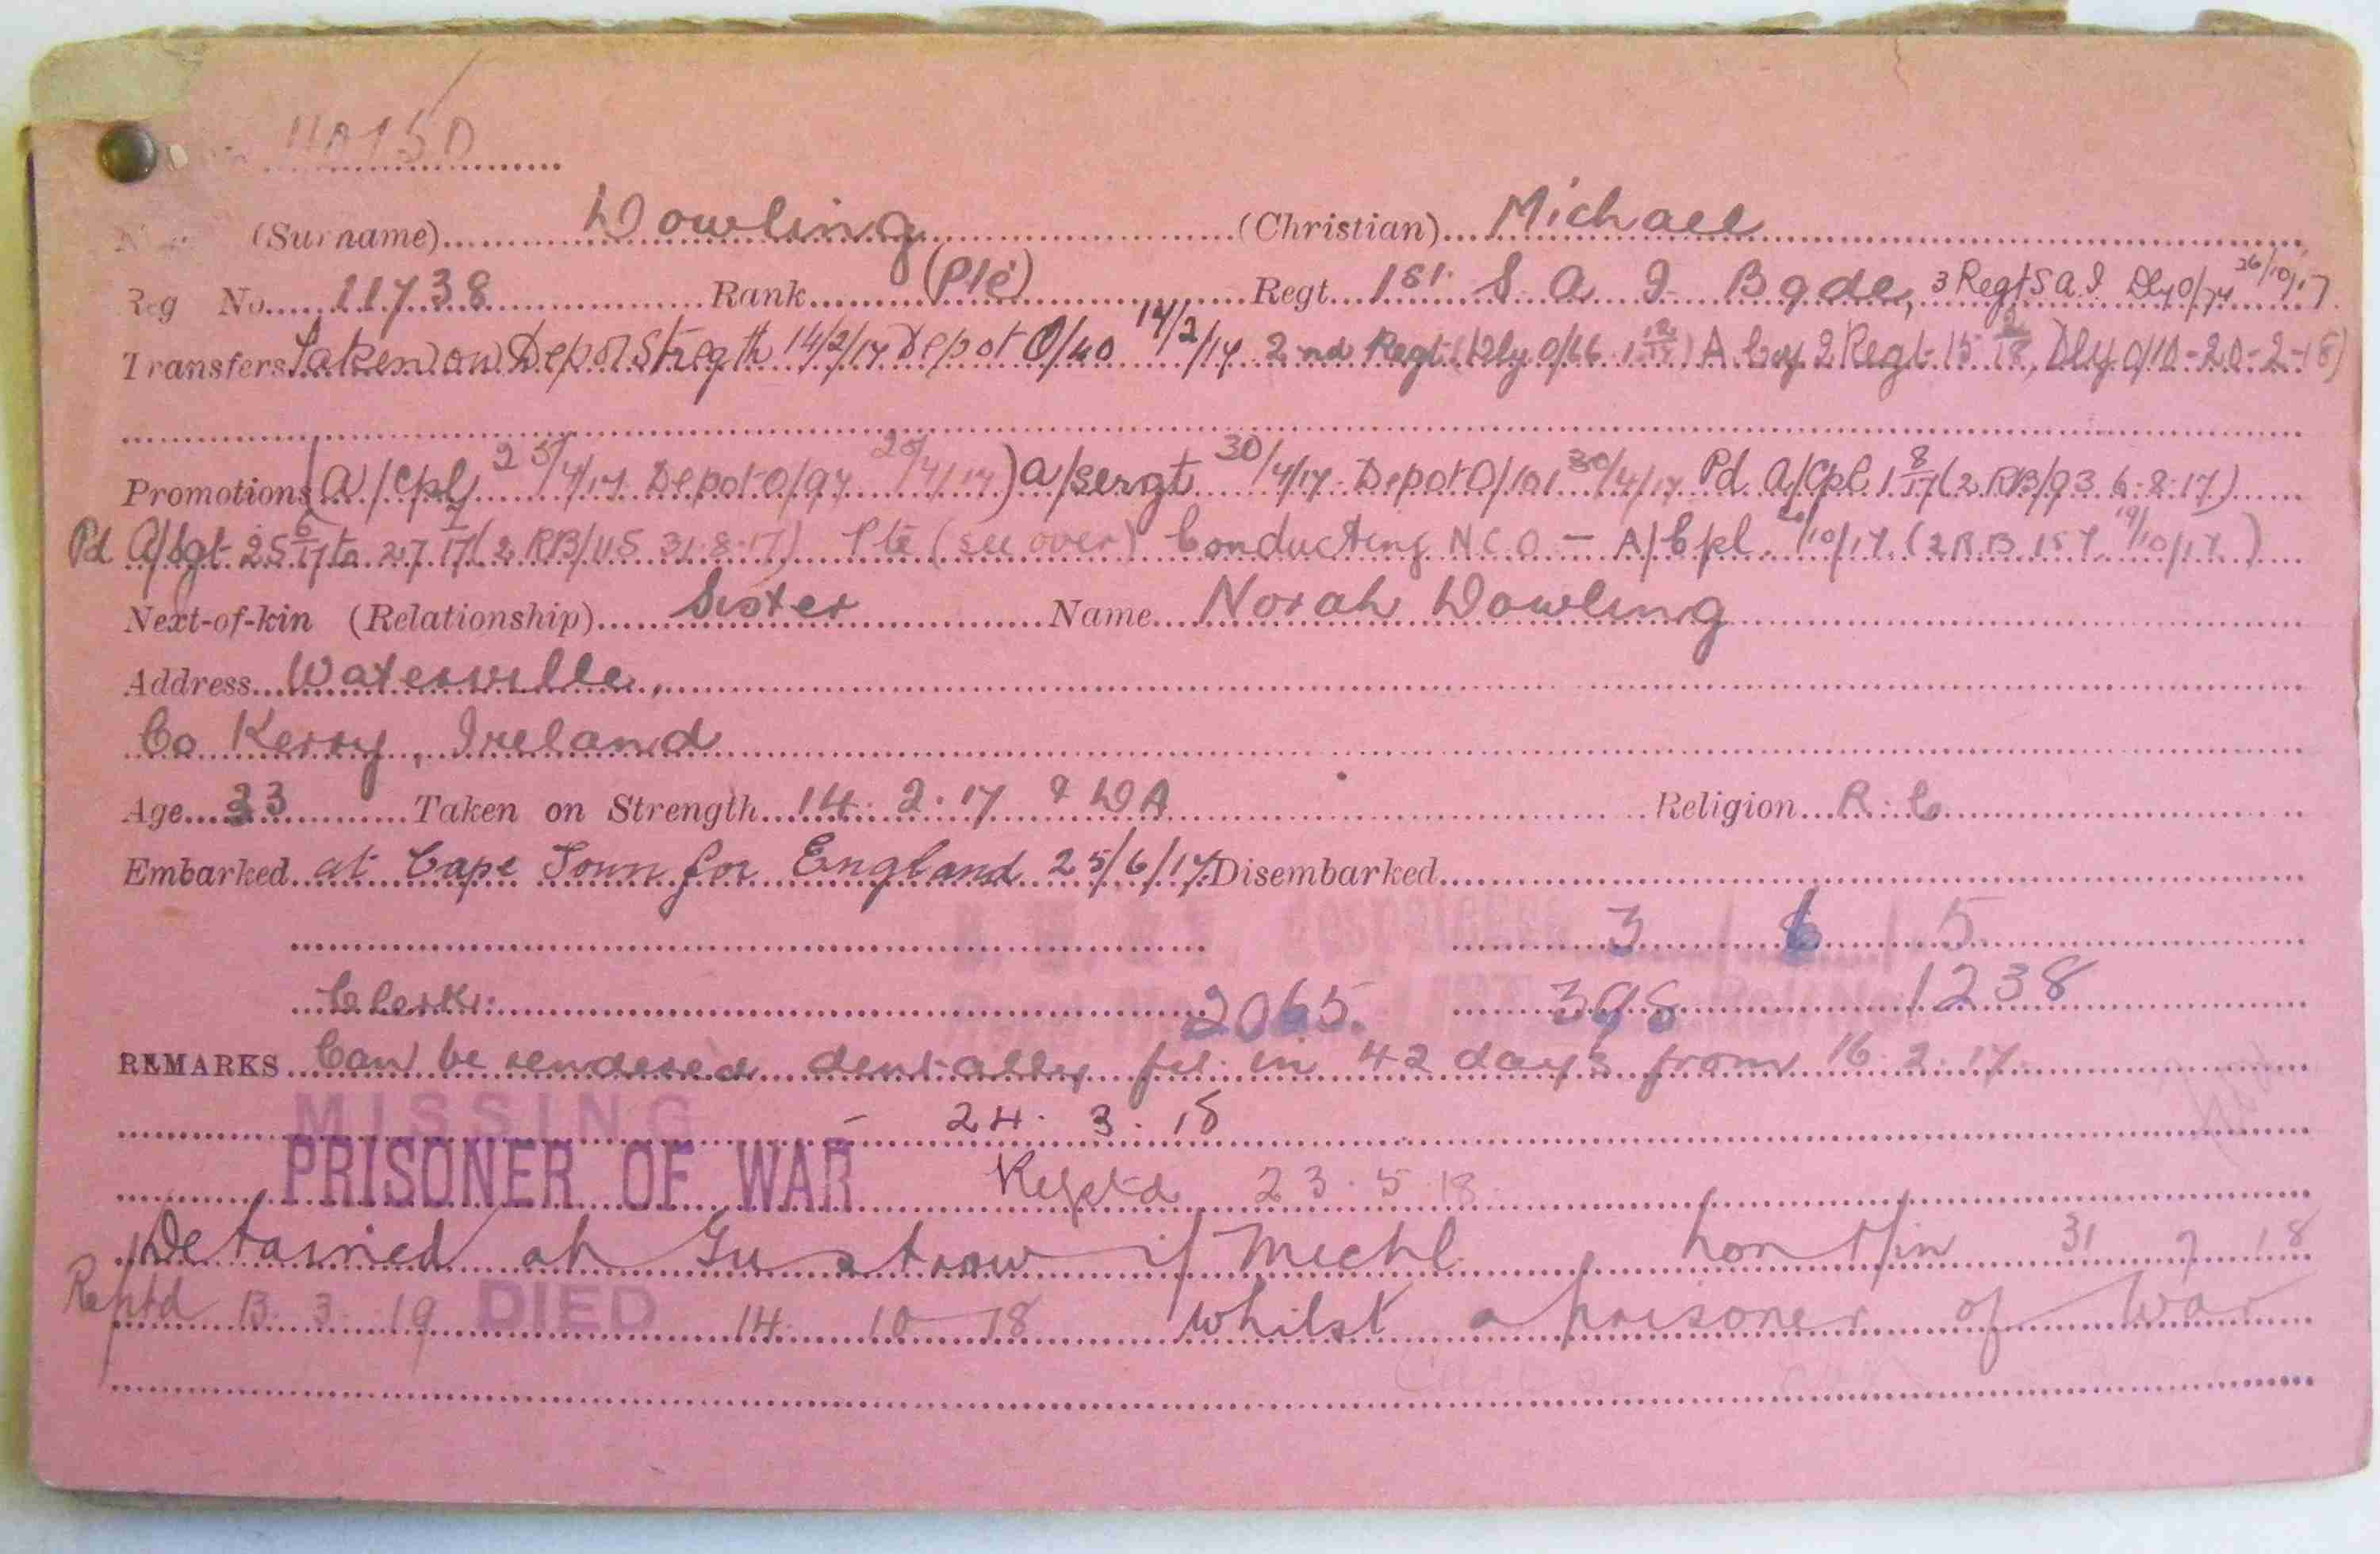 (Surname) Dowling (Christian) Michael
Reg No. 11738 Rank (Pte) Regt. 1st S A I Bgde, 3 Regt S A I Dly O/74 26/10/17
Transfers Taken on Depot Stregth 14/2/17 Depot O/40 14/2/17 2nd Regt (Dly O/66 1 12/17) A Coy 2 Regt 15 2/18, Dly O/10-20-2-18)
Promotions (A/Cpl 25/4/17 Depot O/97 25/4/17) A/Sergt 30/4/17 Depot O/101 30/4/17 Pd A/Cpl 1 8/17 (2 RB/93 6.8.17)
Pd A/Sgt 25 6/17 to 27 7/17 (2 RB/115 31.8.17) Pte (see over) Conducting N.C.O - A/Cpl 20/10/17 (2 R B 157 19/10/17)
Next-of-kin (Relationship) Sister Name Norah Dowling
Address Waterville,
Co Kerry, Ireland
Age 33 Taken on Strength 14.2.17 9 DA Religion R.C
Embarked at Cape Town for England 25/6/17 Disembarked
3 / 6 / 5
Clerk. 2065. 398 1238
REMARKS Can be rendered dentally fit in 42 days from 16.2.17
MISSING - 24.3.18
PRISONER OF WAR Reptd 23.5.18
Detained at Gustrow if Mechl 31 7 18
Reptd 13.3.19 DIED 14 10 18 whilst a prisoner of War